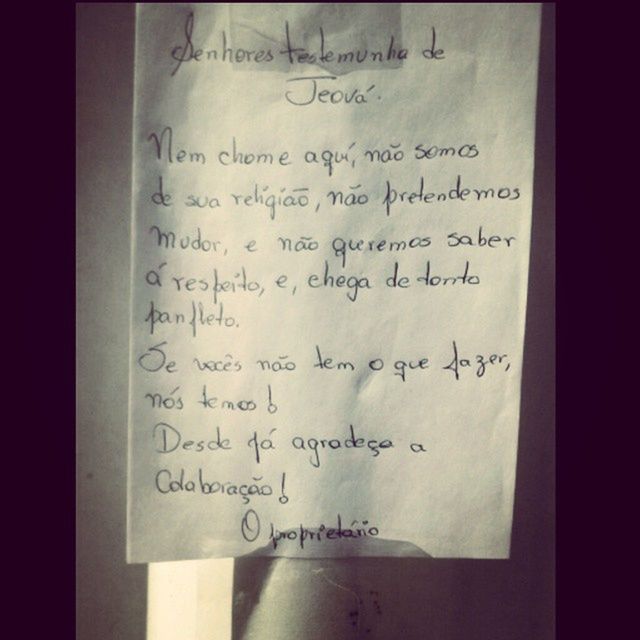 Senhores testemunha de
Jeová.
Nem chame aquí, não somos
de sua religião, não pretendemos
mudar, e não queremos saber
á respeito, e, chega de tanto
panfleto.
Se vocês não tem o que fazer,
nós temos!
Desde já agradeço a
Colaboração!
O proprietário